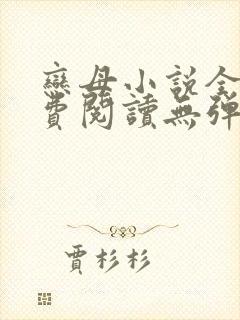 戀母小說全
費閱讀無彈
賈杉杉